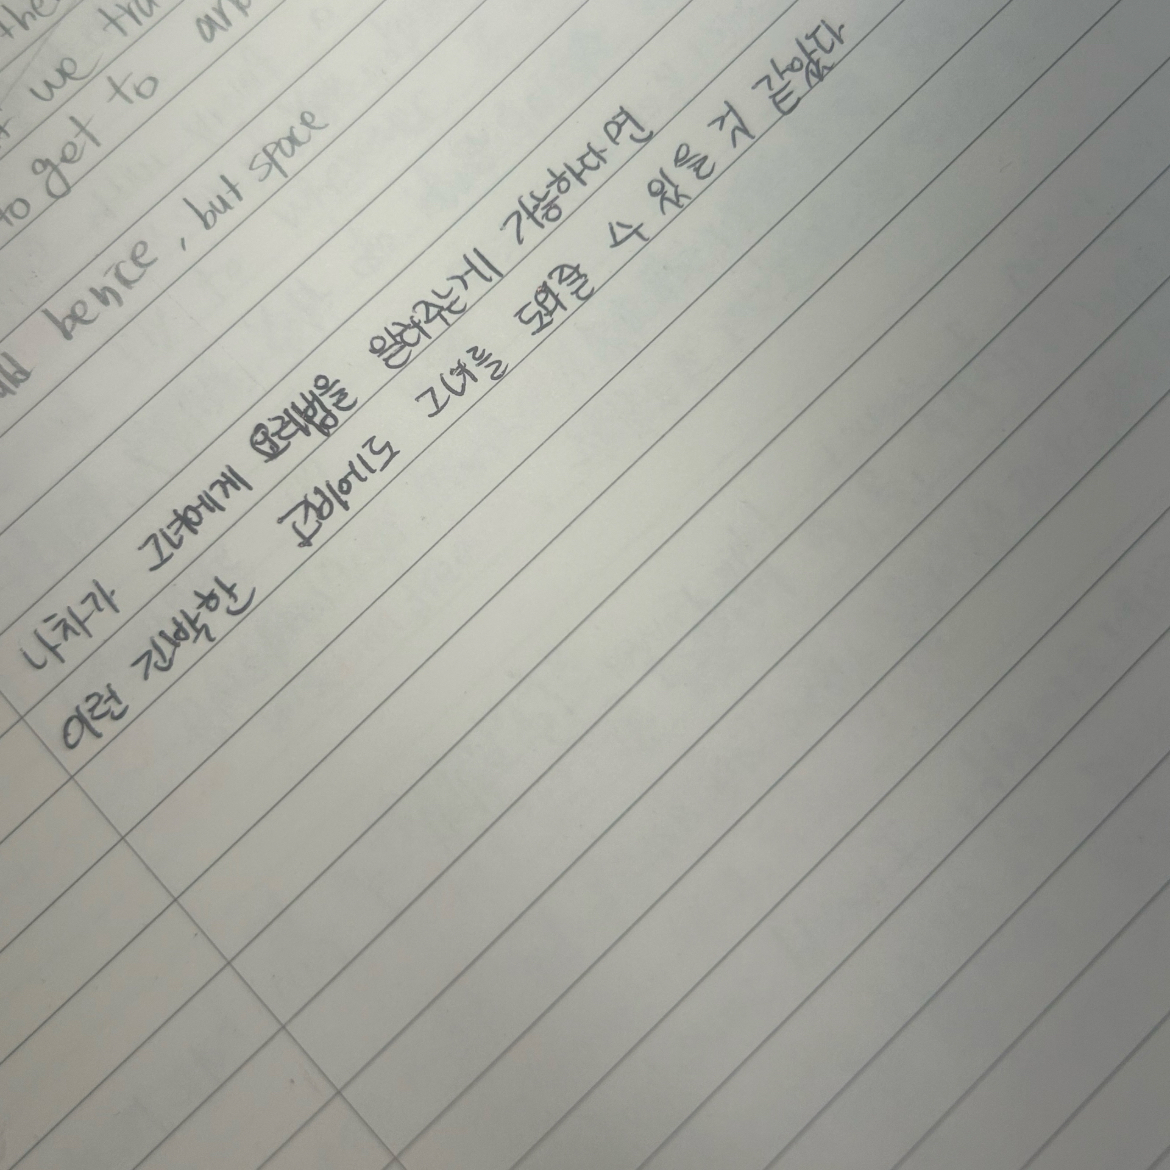 the
we tra
to get to arp
ld be nice, but space
나차가 그녀에게 요리뱁을 알아주는게 가능하다면
이런 긴박한 고비에도 그녀를 도와줄 수 있을 것 같았다